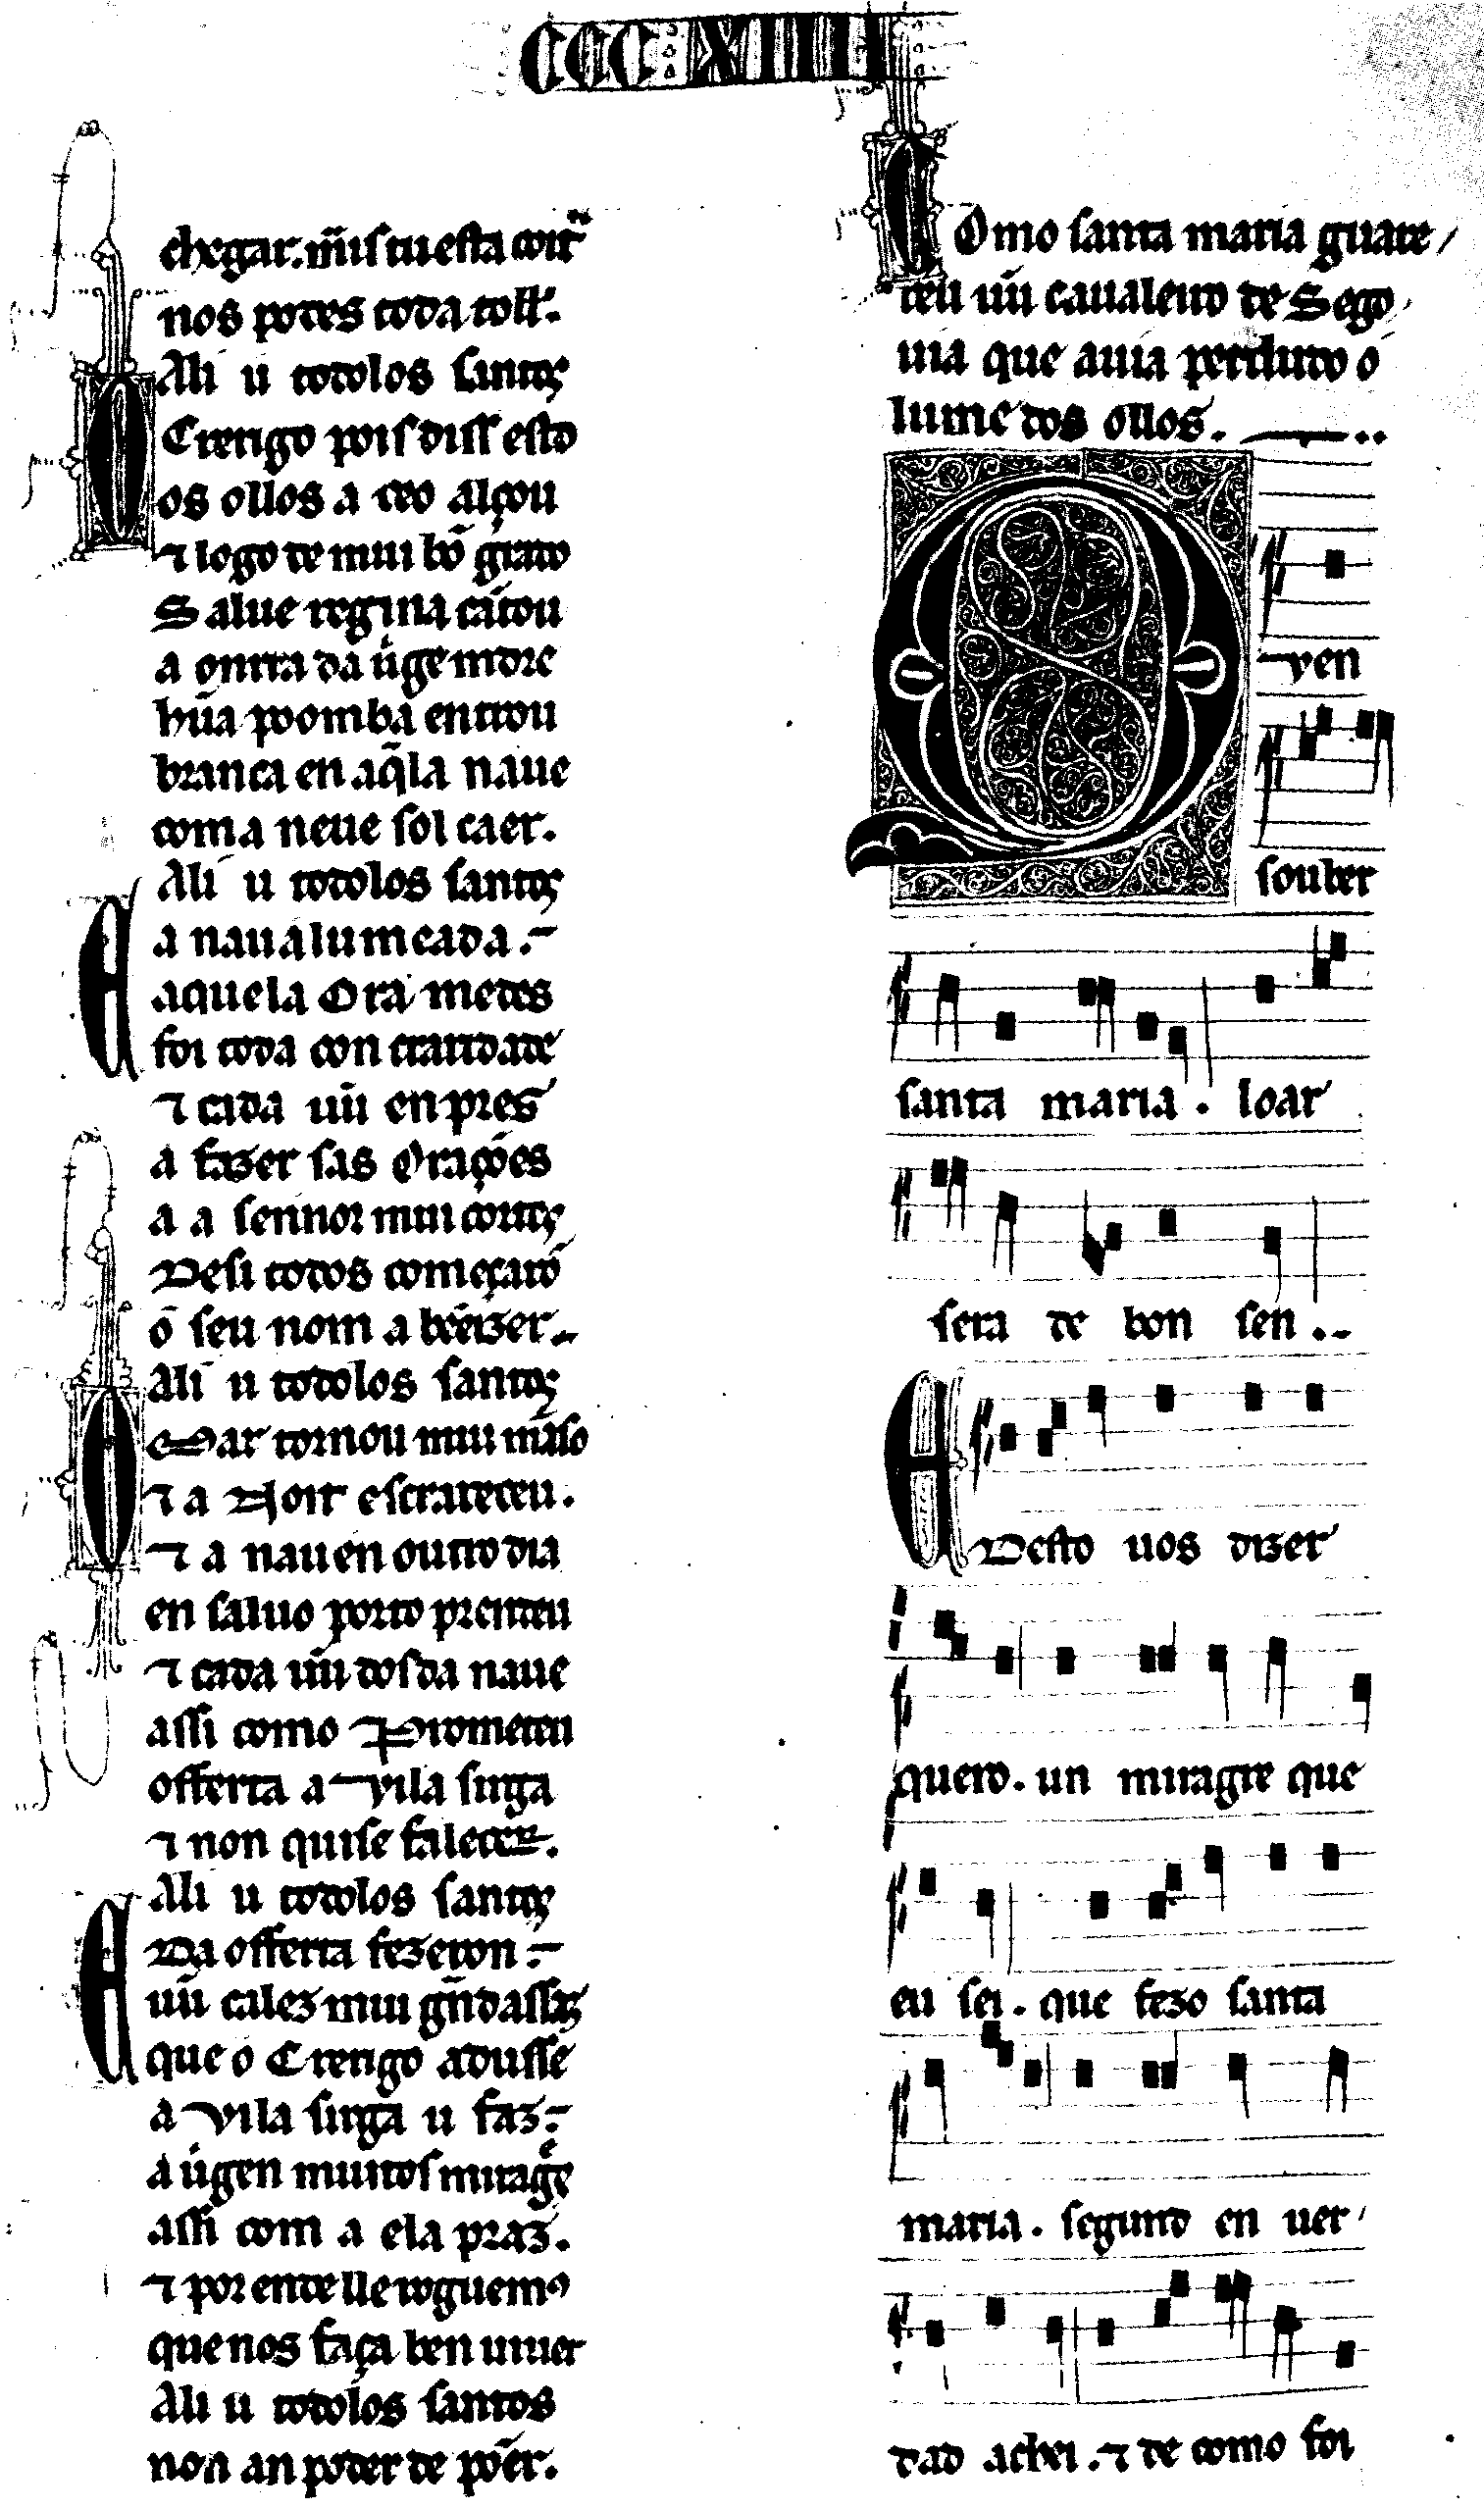 CCC XIIII
chegar. mais tu esta coit
nos podes toda toll̃.
Ali u todolos santos
O Crerigo pois diss esto
os ollos a ceo alçou
⁊ logo de mui bõ grado
Salue regina cãtou
a onrra da uirgẽ madre
hũa poomba entrou
branca en aq̃la naue
com a neue sol caer.
Ali u todolos santos
A a naua lumeada.
aquela Ora medes
foi toda con craridade
⁊ cada uũ en pres
a fazer sas Orações
a a sennor mui cortes
Desi todos começarõ
o seu nom a bẽeizer.
Ali u todolos santos
O Mar tornou mui mãso
⁊ a Noit escraeceu.
⁊ a nau en outro dia
en saluo porto prendeu
⁊ cada uũ dos da naue
assi como Prometeu
offerta a Vila sirga
⁊ non quise falecer.
Ali u todolos santos
A Da offerta fezeron
uũ calez mui gñd assaz
que o Crerigo adusse
a Vila sirga u faz
a uirgen muitos miragẽs
assi com a ela praz.
⁊ por ende lle roguemꝰ
que nos faça ben uiuer
Ali u todolos santos
non an poder de põer.
Como santa maria guare
ceu uũ caualeiro de Sego
uia que auia perdudo o
lume dos ollos.
Quen
souber
santa maria. loar
sera de bon sen.
A Desto uos dizer
quero. un miragre que
eu sei. que fezo santa
maria. segund en uer
dad achei. ⁊ de como foi